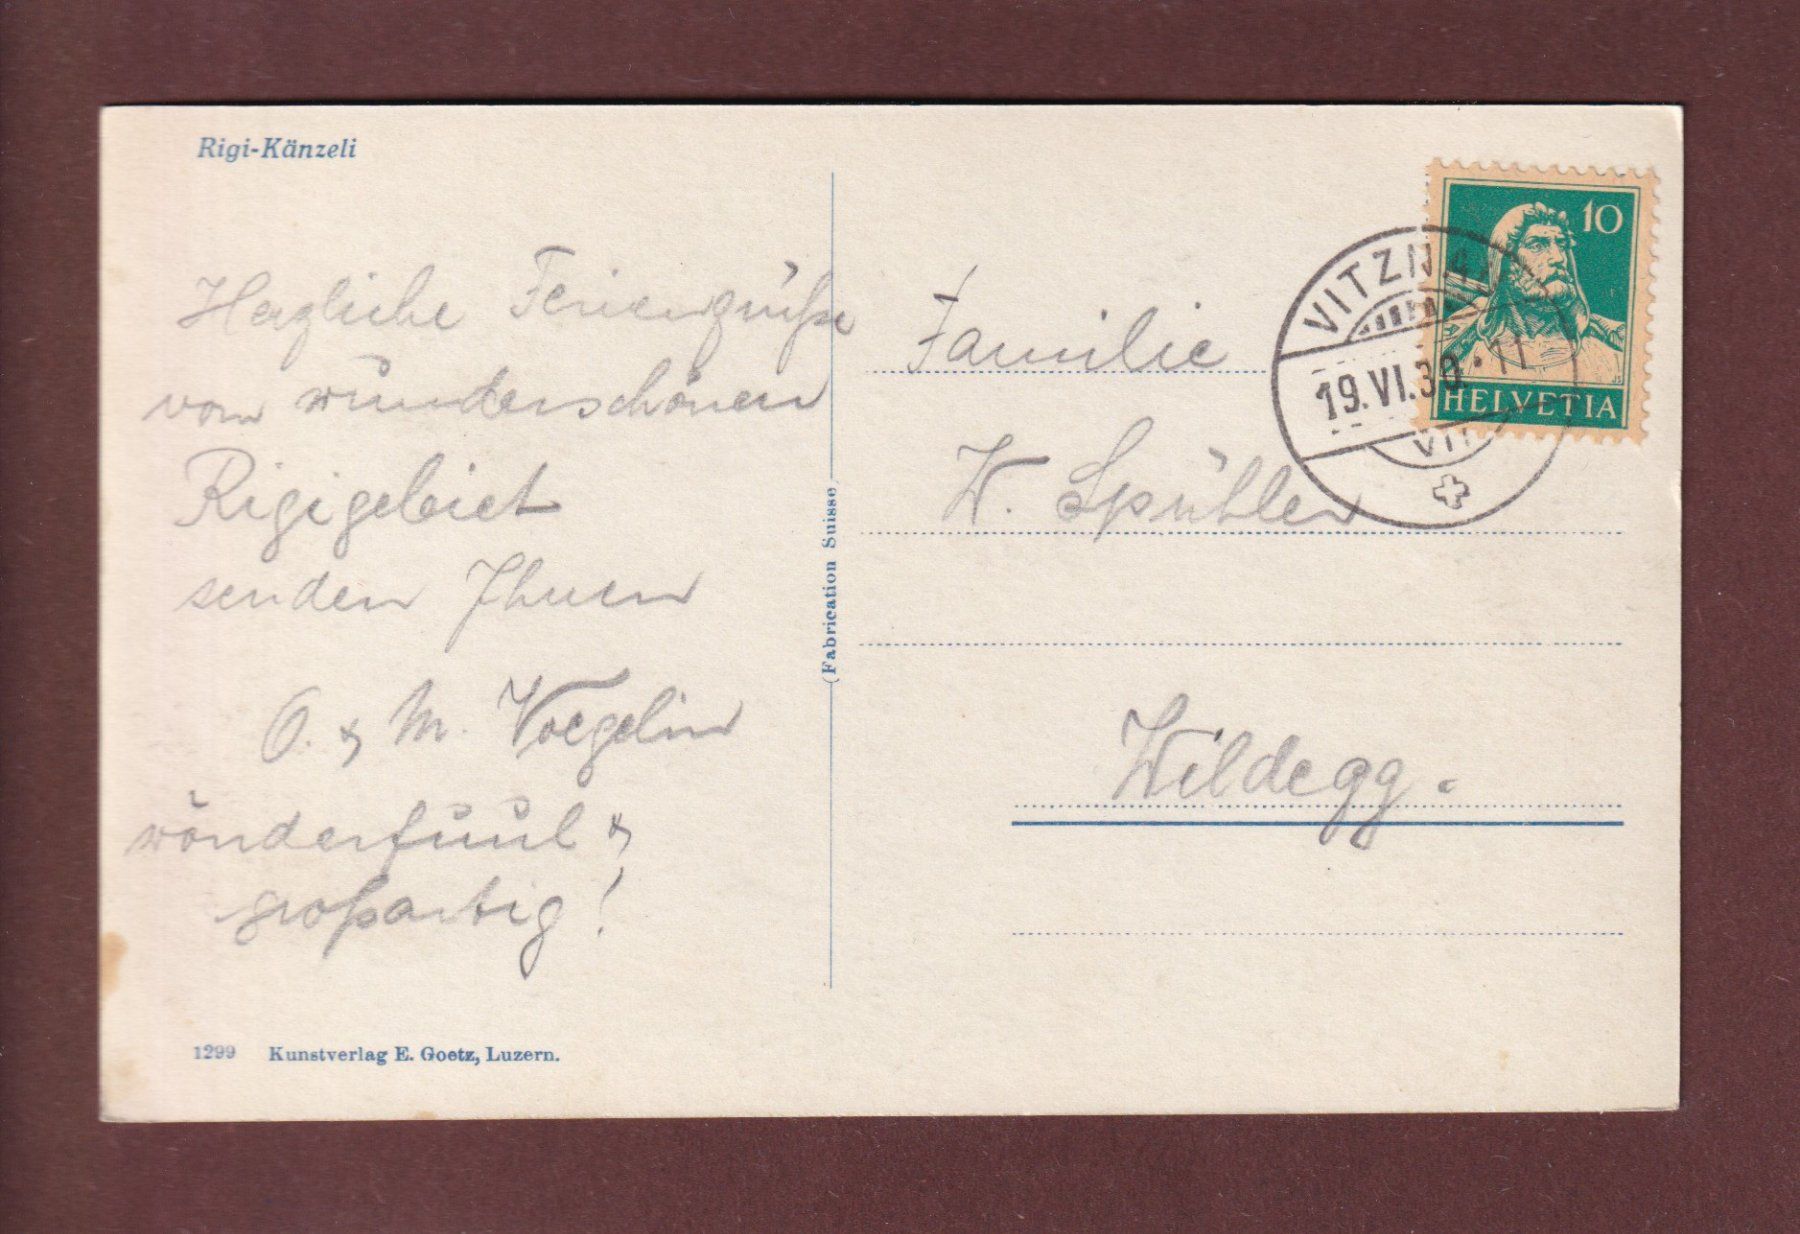 Rigi-Känzeli
Herzliche Feriengrüße
vom wunderschönen
Rigigebiet
senden Ihnen
O. & M. Voegelin
wönderfuul &
großartig!
1299 Kunstverlag E. Goetz, Luzern.
(Fabrication Suisse)
10
HELVETIA
VITZNAU
19.VI.30.·11
VII
Familie
W. Spühler
Wildegg.